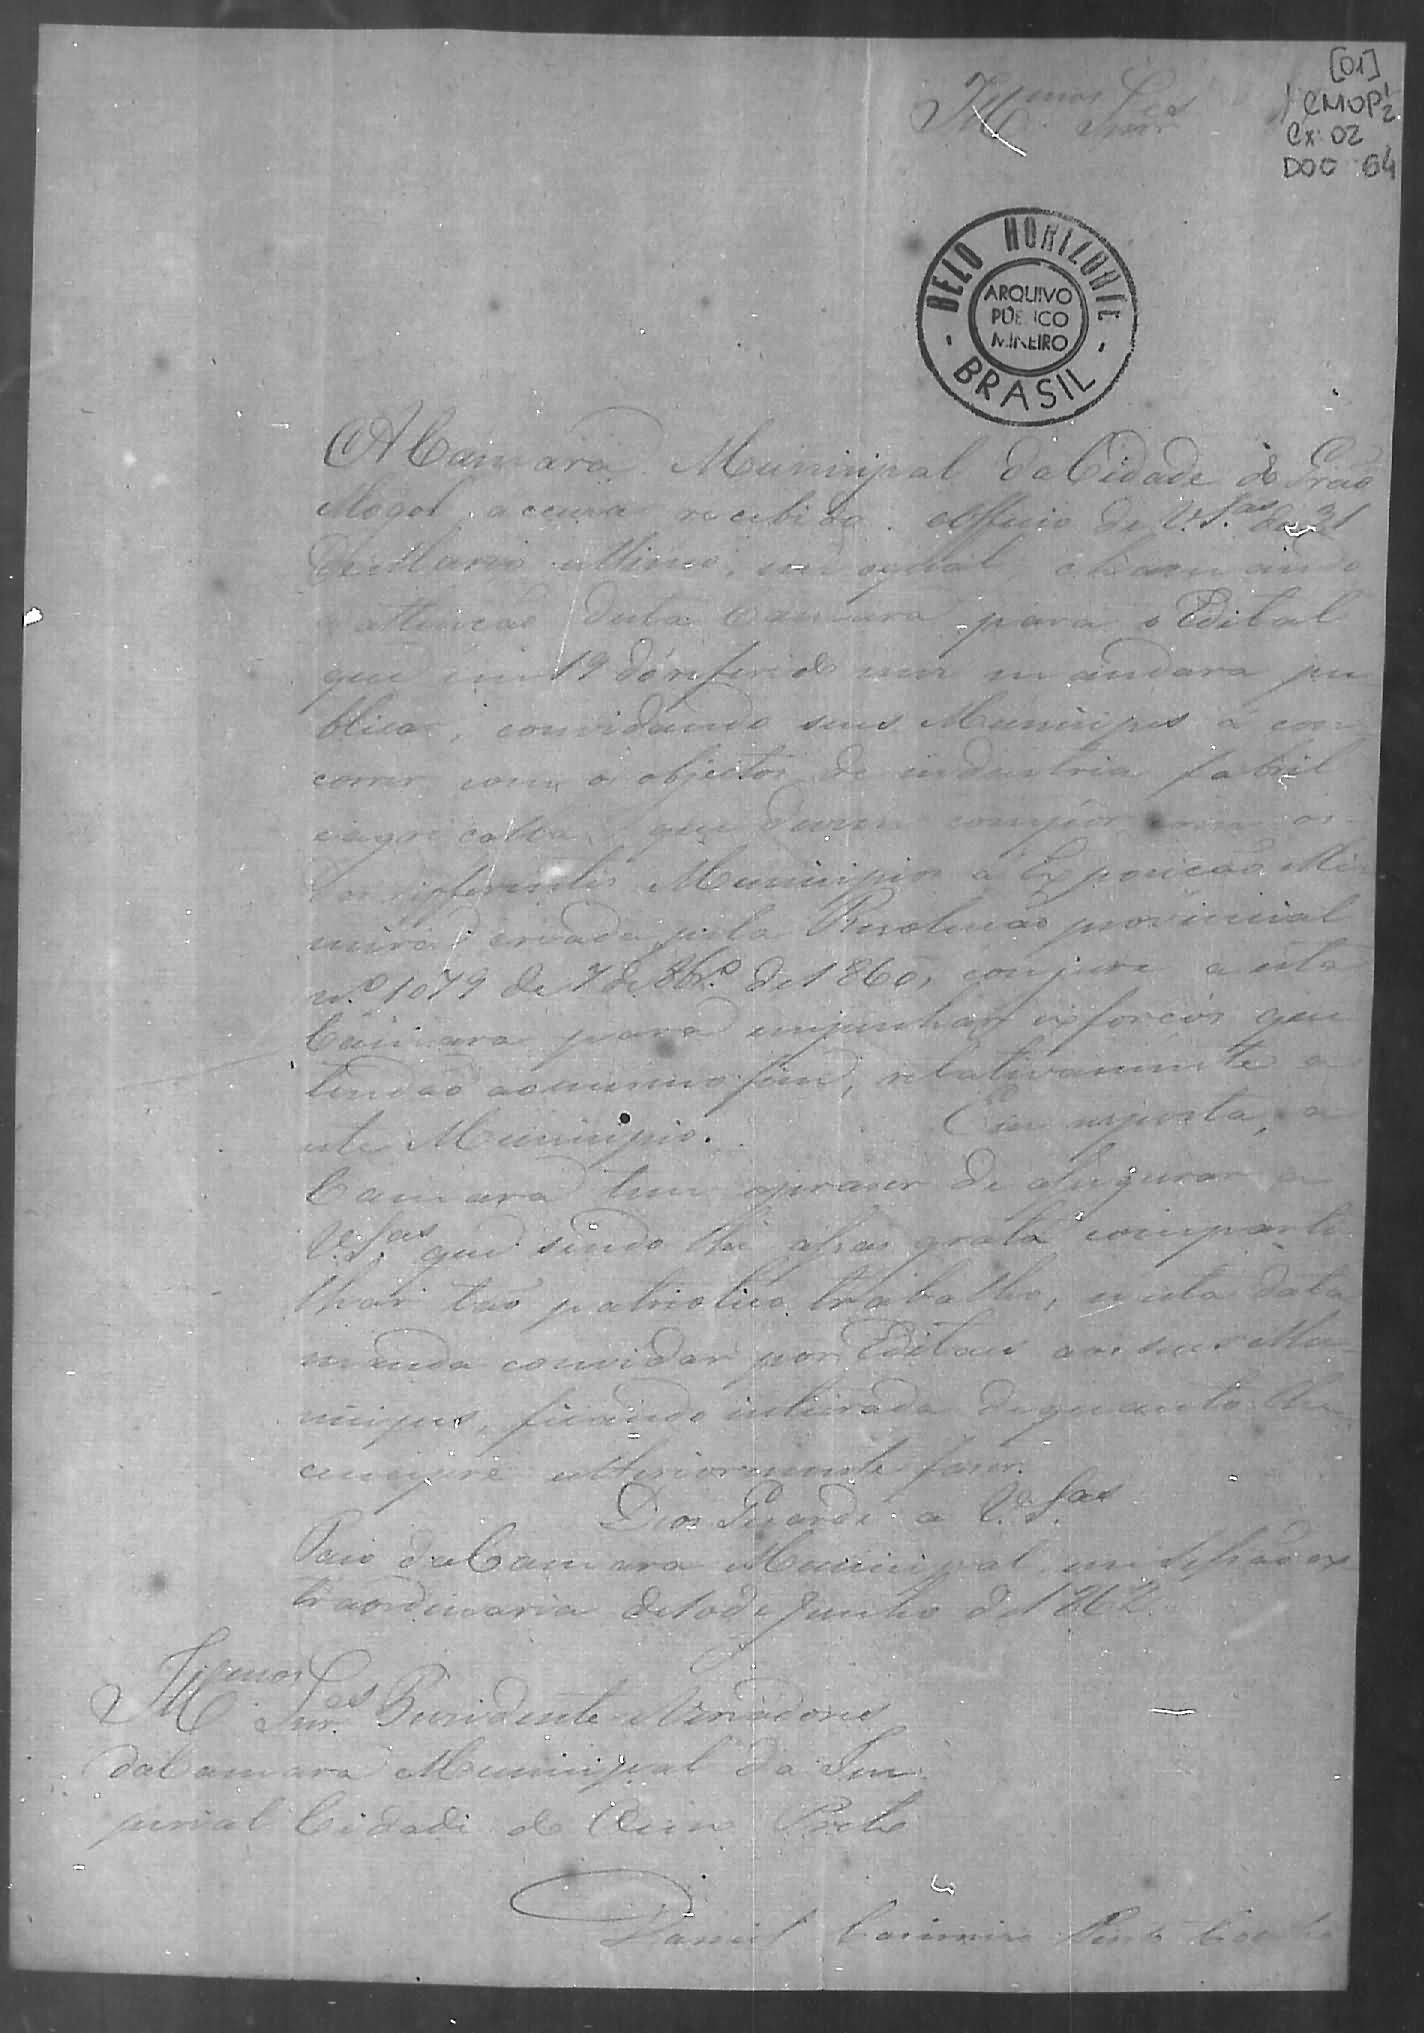 [01]
CMOP 1/2
Cx. 02
DOC 64
Ill.mos Snr.es
BELO HORIZONTE
ARQUIVO
PUBLICO
MINEIRO
BRASIL
A Camara Municipal da Cidade de Grão
Mogol accusa recebido o Officio de V.Sas de 31
de Março ultimo, em o qual, chamando
a attenção desta Camara para o Edital
que em 19 do referido mez mandara pu-
blicar, convidando seus Municipes á con-
correr com os objectos de industria fabril
e agricola, que devem compôr
dos differentes Municipios a Exposição Mi-
neira creada pela Resolução provincial
n.º 1079 de 7 de 8br.º de 1860, conjura a esta
Camara para empenhar exforços que
tendão ao mesmo fim, relativamente a
este Municipio. Em resposta, a
Camara tem o praser de assegurar a
V.Sas que sendo lhe assas grato comparti-
lhar tão patriotico trabalho, nesta data
manda convidar por Editaes aos seus Mu-
nicipes, ficando inteirada de quanto lhe
cumpre ulteriormente faser.
Deos Guarde a V.Sas
Paço da Camara Municipal em Sessão ex-
traordinaria de 10 de Junho de 1862
Ill.mos Snr.es Presidente e Vereadores
da Camara Municipal da Im-
perial Cidade do Ouro Preto
Daniel Casimiro Pinto Coelho